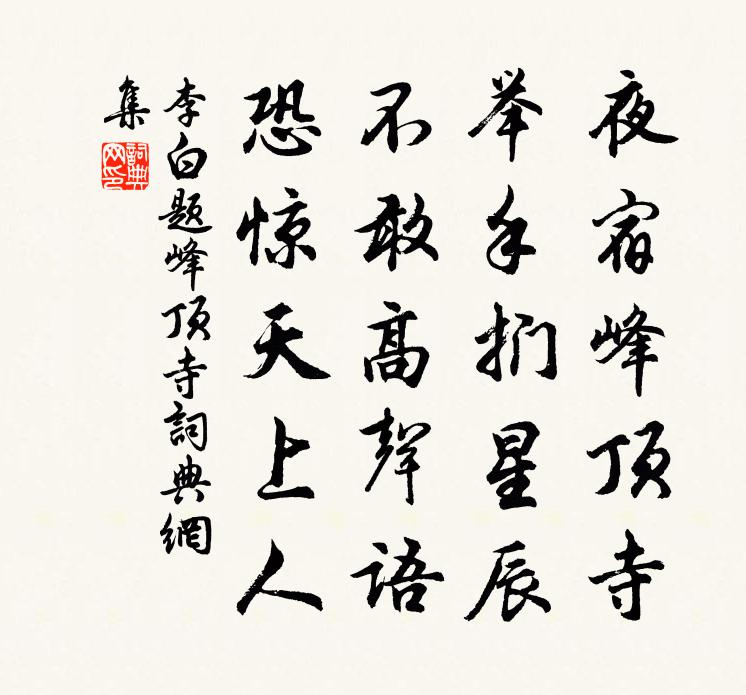 夜宿峰顶寺
举手扪星辰
不敢高聲语
恐惊天上人
李白题峰顶寺詞典網
集
詞典
网印